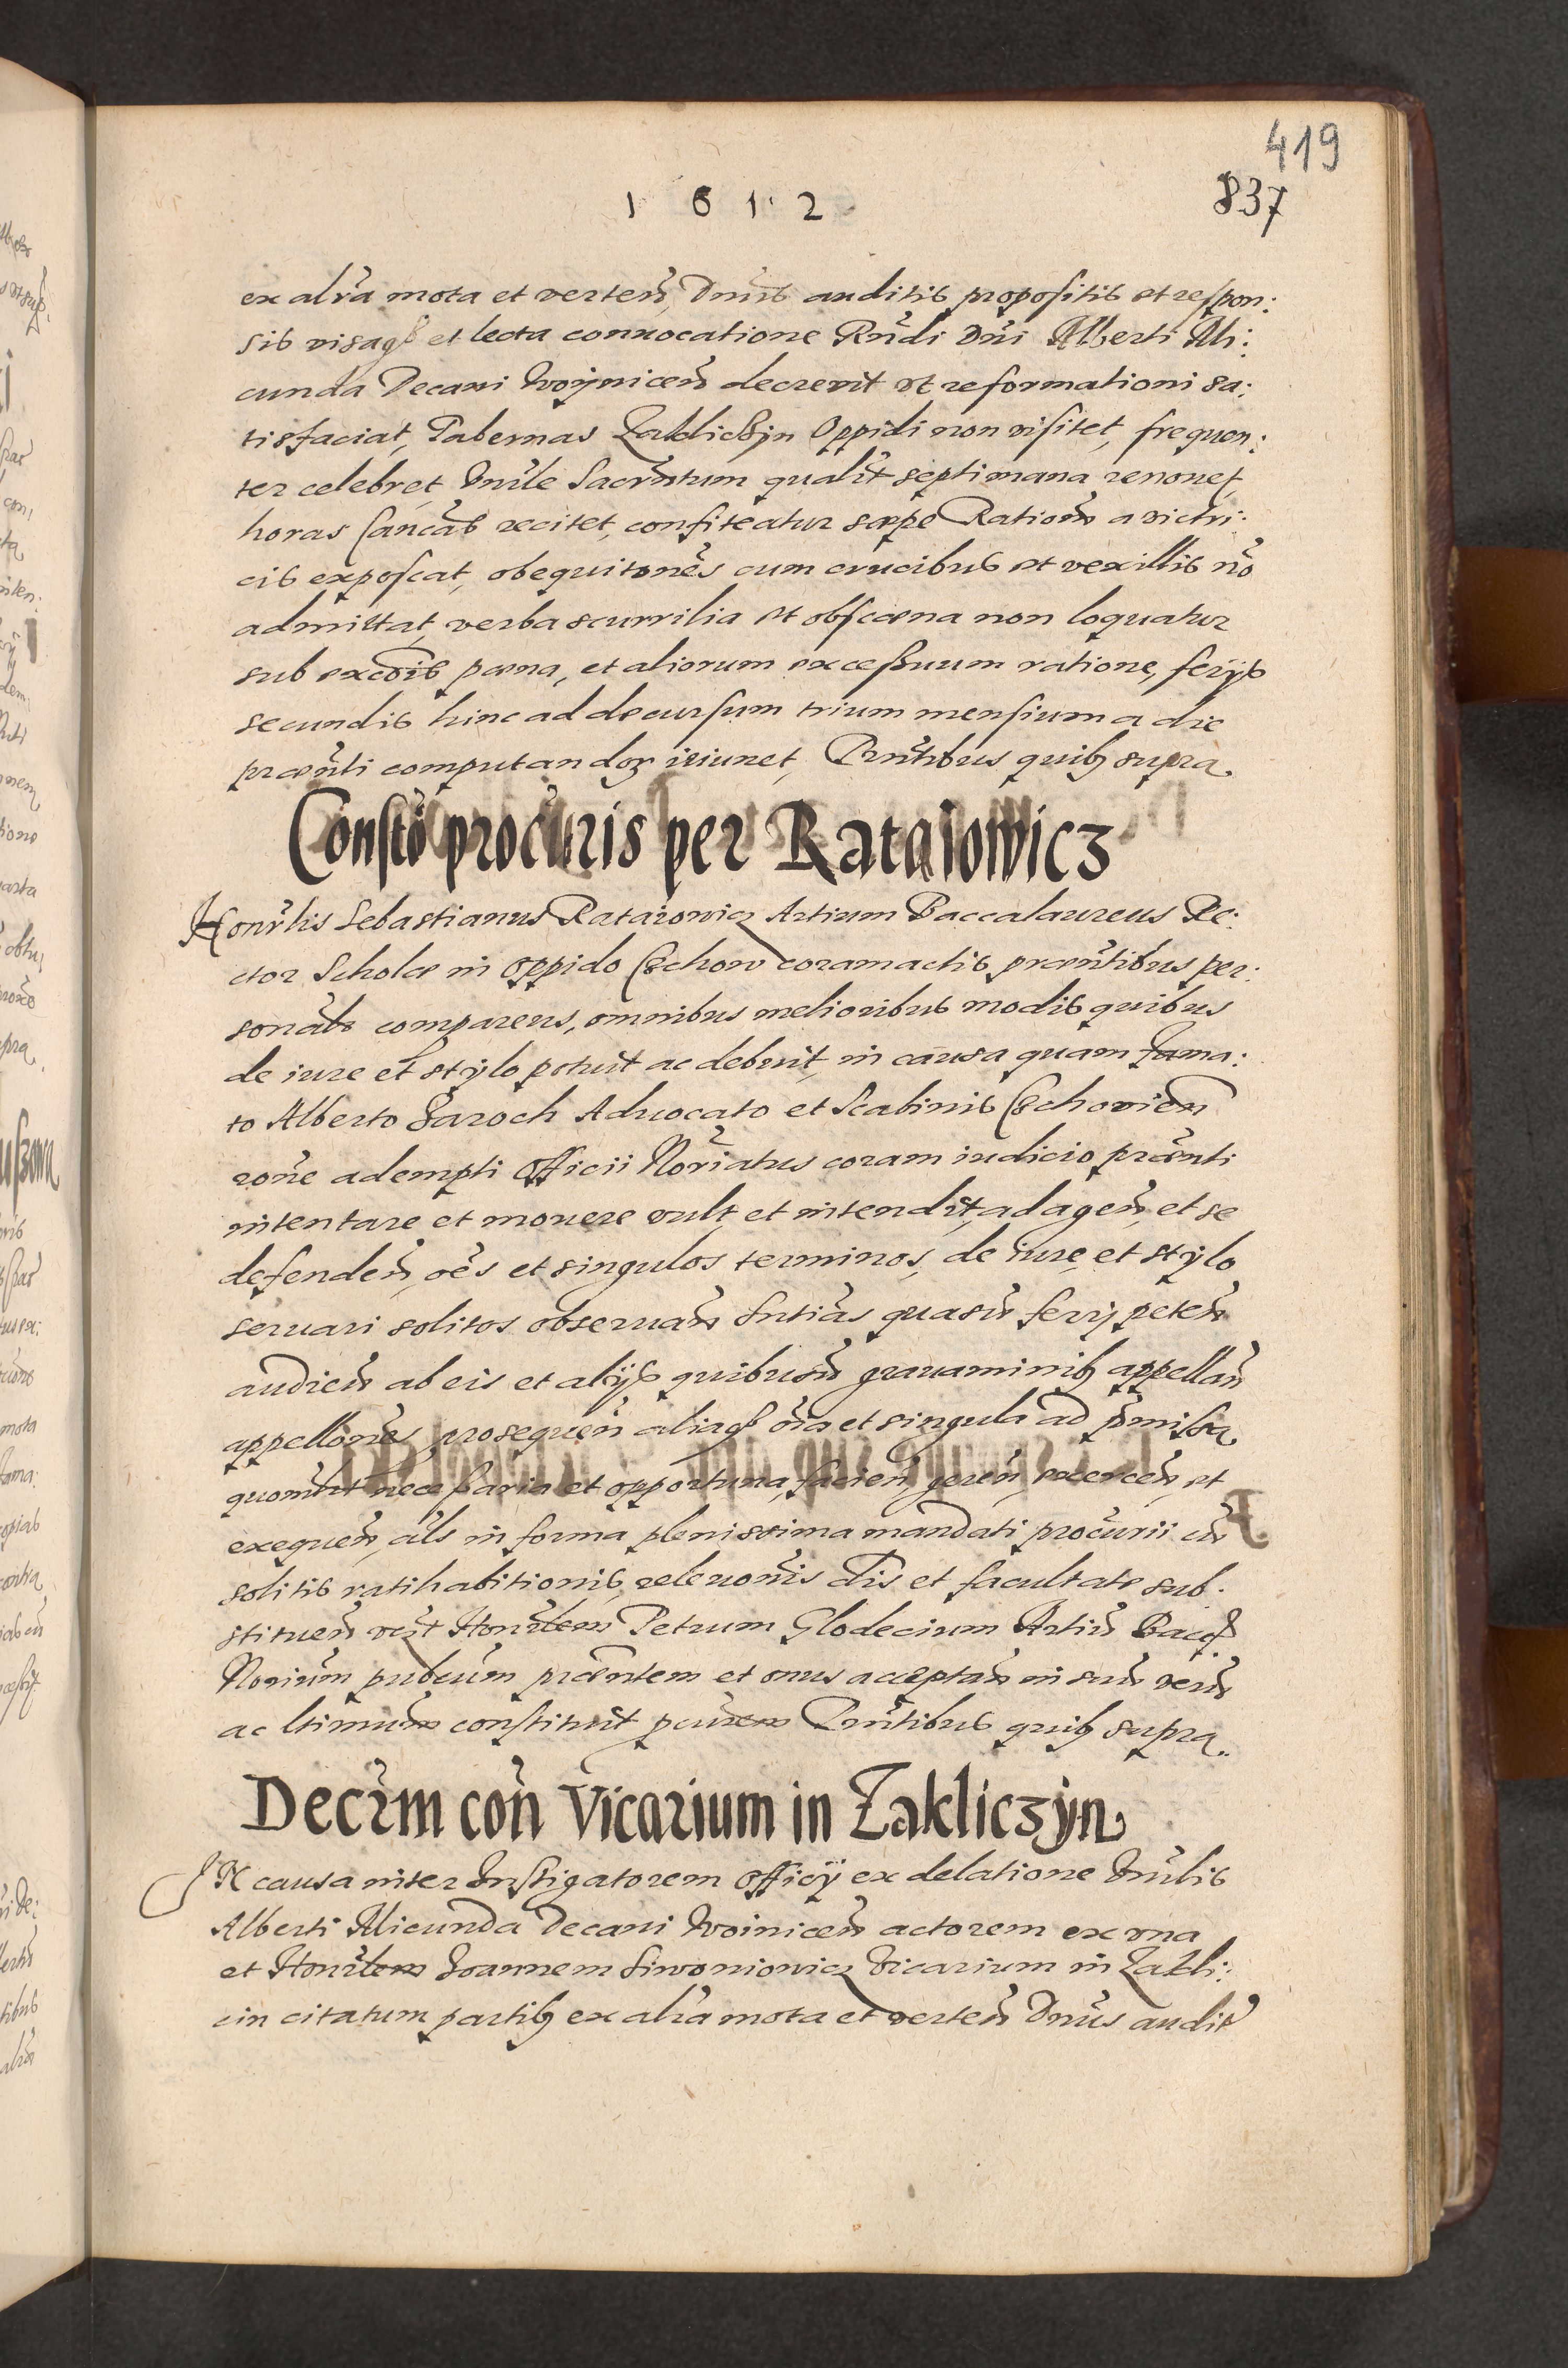 419
1612
837
ex alr̃a mota et verteñ, Dnus auditis propositis et respon:
sis visaq; et lecta connocatione Rñdi Dni Alberti Ali:
cunda Decani Woyniceñ decrevit ut reformationi sa:
tisfaciat, Tabernas Zakliczyn Oppidi non visitet, frequen:
ter celebret, Vnr̃le Sacrm̃tum qualit septimana renouet,
horas Canc̃as recitet, confiteatur sæpe Rationẽ a victri:
cis exposcat, obequitonẽs cum crucibus et vexillis nõ
admittat, verba scurrilia et obscæna non loquatur
sub excõis pæna, et aliorum excessuum ratione, ferijs
secundis hinc ad decursum trium mensium a die
præñti computandoꝝ iriunet, Prñtibus quibꝫ supra.
Constõ procuris per Rataiowicz
Honr̃lis Sebastianus Rataiowicz Artium Baccalaureus Re:
ctor Scholæ in Oppido Czchow coram actis præñtibus per:
sonal̃r comparens, omnibus melioribus modis quibus
de iure et stylo potuit ac debuit, in causa quam fama:
to Alberto Garoch Aduocato et Scabinis Czchovieñ
rõne adempti Officii Noriãtus coram iudicio præñti
intentare et mouere vult et intendit, ad ageñ, et se
defendeñ, oẽs et singulos terminos, de iure et stylo
seruari solitos obseruañ Sntias quasũs ferrj peteñ
audieñ ab eis et alijs quibusũs grauaminibꝫ appellañ
appellonẽs prosequeñ aliaq; oĩa et singula ad p̃missa
quomõlt necessaria et opportuna, facieñ gereñ, exerceñ, et
exequeñ, als in forma plenissima mandati procurii cũ
solitis ratihabitionis, releuonĩs clĩs et facultate sub:
stitueñ vẽt Honr̃lem Petrum Glodecium Artiũ Bacc̃
Noriũm pubcũm præñtem et onus acceptañ in suũ verũ
ac ltimũm constituit pcũrem Prñtibus quibꝫ supra.
Decr̃m coñ Vicarium in Zakliczyn
IN causa inter Instigatorem Officij ex delatione Vnr̃lis
Alberti Alicunda Decani Woiniceñ actorem ex vna
et Honr̃lem Joannem Simoniowicz Vicarium in Zakli:
cin citatum partibꝫ ex alr̃a mota et verteñ Dnus audit